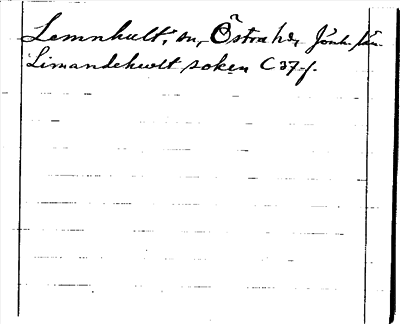 Lemnhult, sn, Östra hd, Jönk. län
Limandehwlt soken C 37-f.